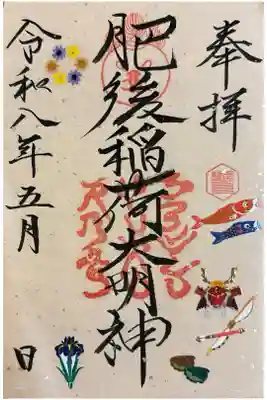 奉拝
肥後稲荷大明神
令和八年五月 日